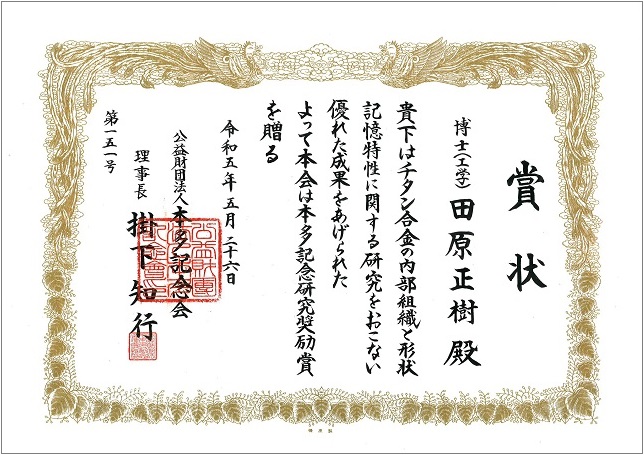 賞状
博士(工学) 田原正樹 殿
貴下はチタン合金の内部組織と形状
記憶特性に関する研究をおこない
優れた成果をあげられた
よって本会は本多記念研究奨励賞
を贈る
令和五年五月二十六日
公益財団法人 本多記念会
理事長 掛下知行
第一五一号